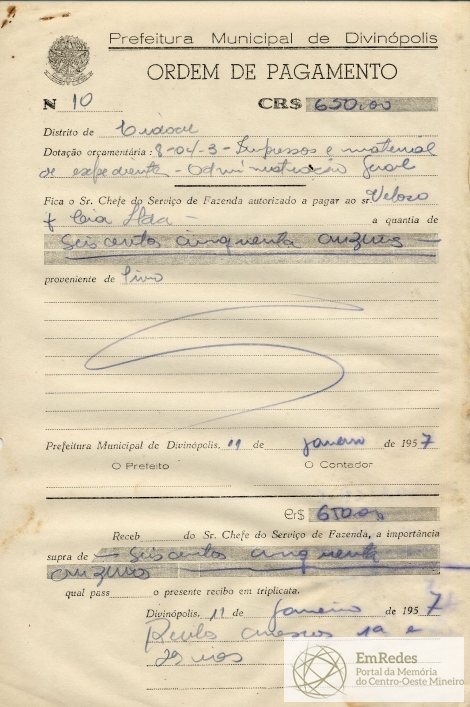 Prefeitura Municipal de Divinópolis
ORDEM DE PAGAMENTO
N 10 CR$ 650,00
Distrito de Cidade
Dotação orçamentária: 8-04-3-Impressos e material
de expediente - Administração Geral
Fica o Sr. Chefe do Serviço de Fazenda autorizado a pagar ao sr. Veloso
& Cia Ltda — a quantia de
Seiscentos cinquenta cruzeiros —
proveniente de livro
Prefeitura Municipal de Divinópolis, 11 de janeiro de 1957
O Prefeito O Contador
Cr$ 650,00
Receb do Sr. Chefe do Serviço de Fazenda, a importância
supra de — Seiscentos cinquenta
cruzeiros
qual pass o presente recibo em triplicata.
Divinópolis, 11 de janeiro de 1957
1a e
2as vias
EmRedes
Portal da Memória
do Centro-Oeste Mineiro